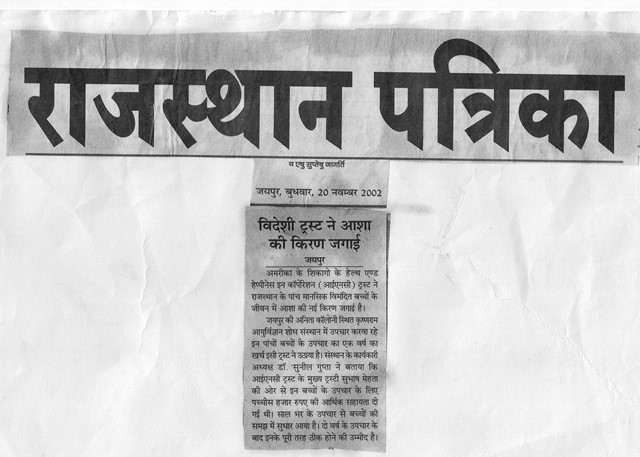 राजस्थान पत्रिका
य एषु सुप्तेषु जागर्ति
जयपुर, बुधवार, 20 नवम्बर 2002
विदेशी ट्रस्ट ने आशा
की किरण जगाई
जयपुर
अमरीका के शिकागो के हेल्थ एण्ड
हेप्पीनेस इन कॉर्पोरेशन (आईएनसी) ट्रस्ट ने
राजस्थान के पांच मानसिक विमंदित बच्चों के
जीवन में आशा की नई किरण जगाई है।
जयपुर की अनिता कॉलोनी स्थित कृष्णराम
आयुर्विज्ञान शोध संस्थान में उपचार करवा रहे
इन पांचों बच्चों के उपचार का एक वर्ष का
खर्च इसी ट्रस्ट ने उठाया है। संस्थान के कार्यकारी
अध्यक्ष डॉ. सुनील गुप्ता ने बताया कि
आईएनसी ट्रस्ट के मुख्य ट्रस्टी सुभाष मेहता
की ओर से इन बच्चों के उपचार के लिए
पच्चीस हजार रुपए की आर्थिक सहायता दी
गई थी। साल भर के उपचार से बच्चों की
समझ में सुधार आया है। दो वर्ष के उपचार के
बाद इनके पूरी तरह ठीक होने की उम्मीद है।